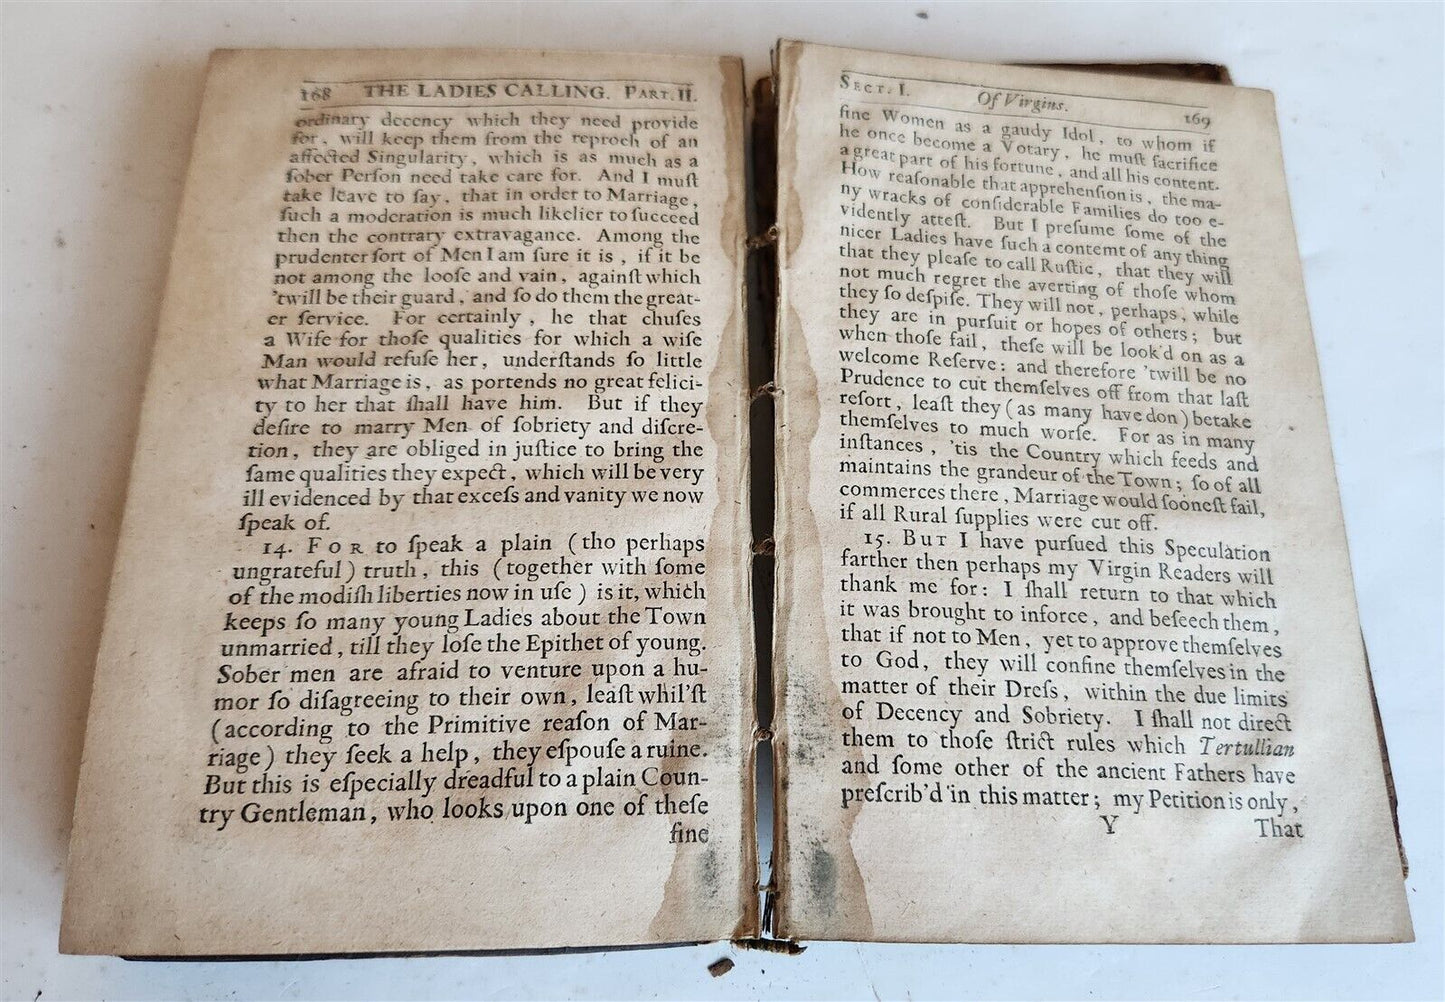 168 THE LADIES CALLING. PART. II.
ordinary decency which they need provide
for, will keep them from the reproch of an
affected Singularity, which is as much as a
ſober Perſon need take care for. And I muſt
take leave to ſay, that in order to Marriage,
ſuch a moderation is much likelier to ſucceed
then the contrary extravagance. Among the
prudenter ſort of Men I am ſure it is, if it be
not among the looſe and vain, againſt which
'twill be their guard, and ſo do them the great-
er ſervice. For certainly, he that chuſes
a Wife for thoſe qualities for which a wiſe
Man would refuſe her, underſtands ſo little
what Marriage is, as portends no great felici-
ty to her that ſhall have him. But if they
deſire to marry Men of ſobriety and diſcre-
tion, they are obliged in juſtice to bring the
ſame qualities they expect, which will be very
ill evidenced by that exceſs and vanity we now
ſpeak of.
14. FOR to ſpeak a plain (tho perhaps
ungrateful) truth, this (together with ſome
of the modiſh liberties now in uſe) is it, which
keeps ſo many young Ladies about the Town
unmarried, till they loſe the Epithet of young.
Sober men are afraid to venture upon a hu-
mor ſo diſagreeing to their own, leaſt whil'ſt
(according to the Primitive reaſon of Mar-
riage) they ſeek a help, they eſpouſe a ruine.
But this is eſpecially dreadful to a plain Coun-
try Gentleman, who looks upon one of theſe
fine
SECT. I. Of Virgins. 169
fine Women as a gaudy Idol, to whom if
he once become a Votary, he muſt ſacrifice
a great part of his fortune, and all his content.
How reaſonable that apprehenſion is, the ma-
ny wracks of conſiderable Families do too e-
vidently atteſt. But I preſume ſome of the
nicer Ladies have ſuch a contemt of any thing
that they pleaſe to call Ruſtic, that they will
not much regret the averting of thoſe whom
they ſo deſpiſe. They will not, perhaps, while
they are in purſuit or hopes of others; but
when thoſe fail, theſe will be look'd on as a
welcome Reſerve: and therefore 'twill be no
Prudence to cut themſelves off from that laſt
reſort, leaſt they (as many have don) betake
themſelves to much worſe. For as in many
inſtances, 'tis the Country which feeds and
maintains the grandeur of the Town; ſo of all
commerces there, Marriage would ſooneſt fail,
if all Rural ſupplies were cut off.
15. BUT I have purſued this Speculation
farther then perhaps my Virgin Readers will
thank me for: I ſhall return to that which
it was brought to inforce, and beſeech them,
that if not to Men, yet to approve themſelves
to God, they will confine themſelves in the
matter of their Dreſs, within the due limits
of Decency and Sobriety. I ſhall not direct
them to thoſe ſtrict rules which Tertullian
and ſome other of the ancient Fathers have
preſcrib'd in this matter; my Petition is only,
Y That